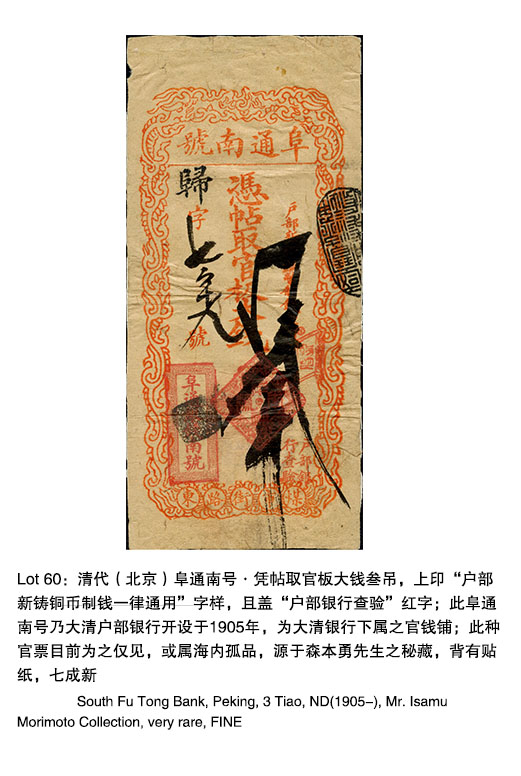 阜通南號
歸字
號
憑帖取官
阜
南號
行查驗
東路衚
Lot 60：清代（北京）阜通南号·凭帖取官板大钱叁吊，上印“户部
新铸铜币制钱一律通用”字样，且盖“户部银行查验”红字；此阜通
南号乃大清户部银行开设于1905年，为大清银行下属之官钱铺；此种
官票目前为之仅见，或属海内孤品，源于森本勇先生之秘藏，背有贴
纸，七成新
South Fu Tong Bank, Peking, 3 Tiao, ND(1905–), Mr. Isamu
Morimoto Collection, very rare, FINE